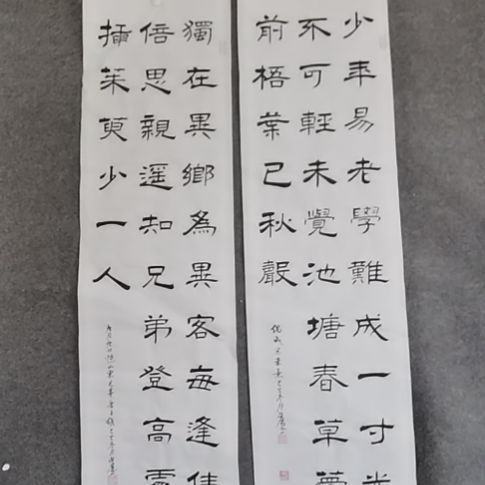 少年易老學難成一寸光
不可輕未覺池塘春草夢
前梧葉已秋聲
獨在異鄉為異客每逢佳
倍思親遥知兄弟登高處
插茱萸少一人